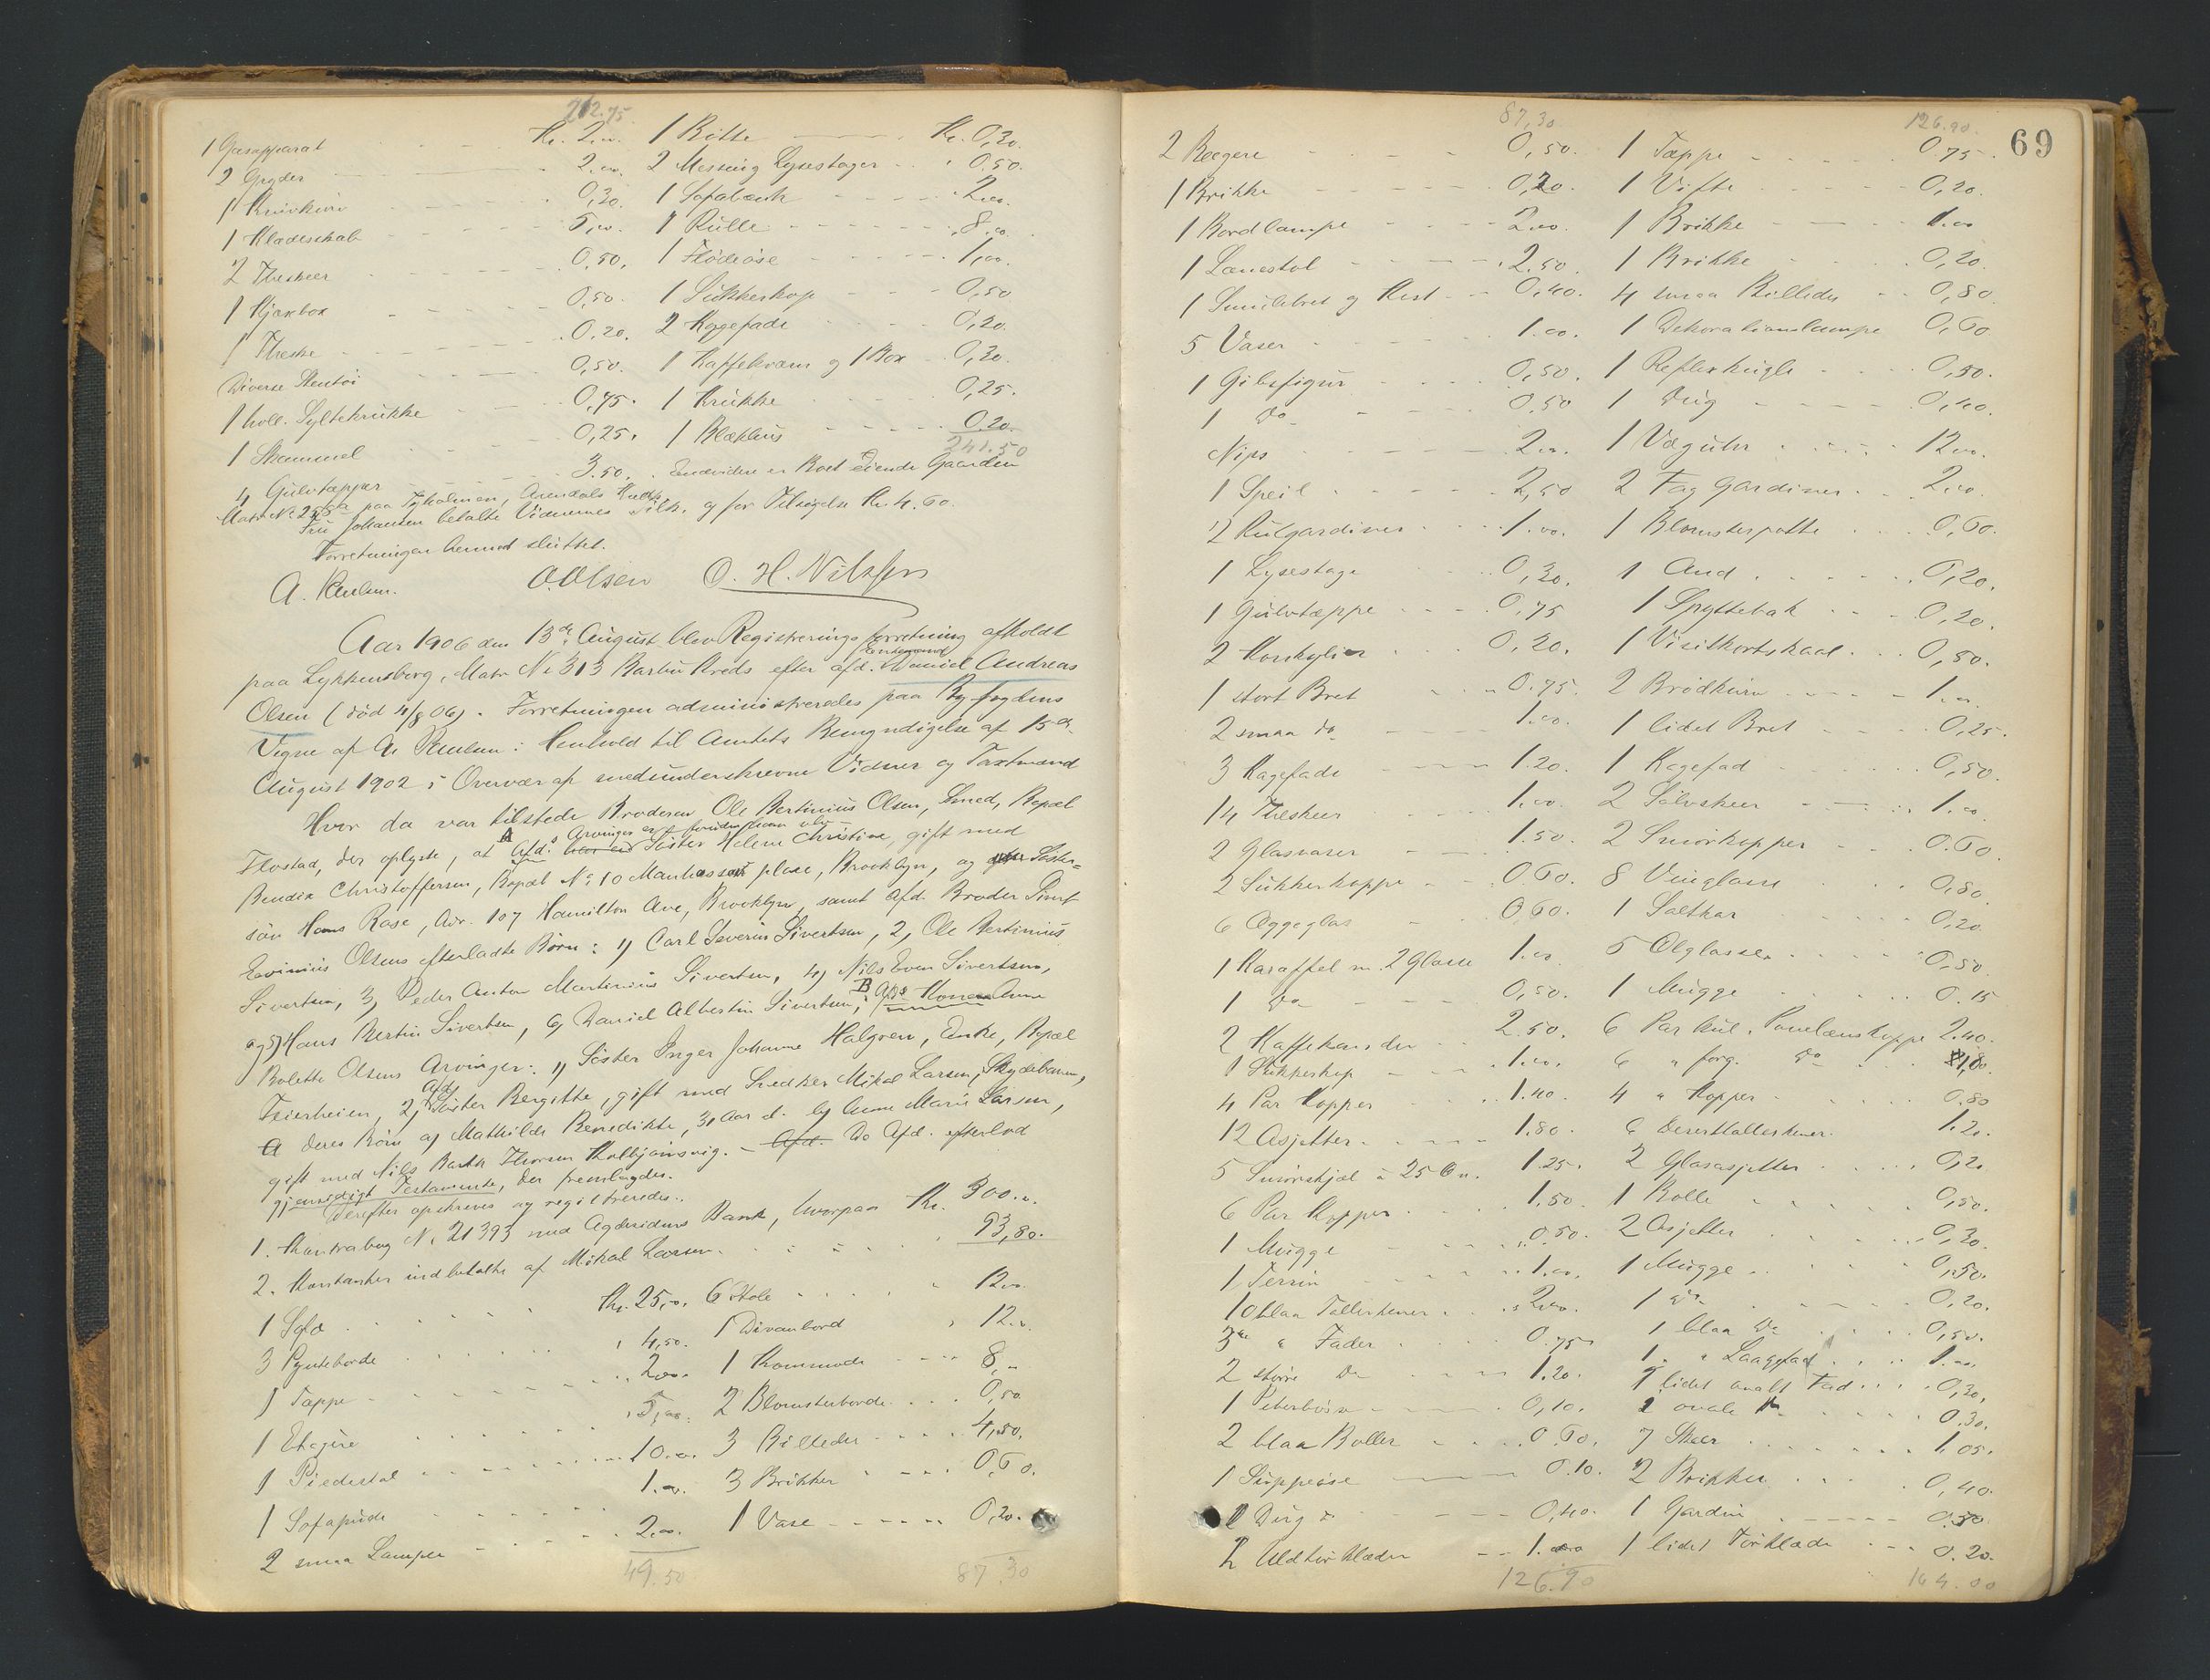 212.75
1 Gasapparat Kr. 2,00.
2 Gryder 2,00.
1 0,30.
1 Klædeskab 5,00.
2 Theskeer 0,50.
1 0,50.
1 Theske 0.20.
Diverse Stentøi 0,50.
1 holl. Syltekrukke 0,75.
1 Skammel 0,25.
4 Gulvtæpper 3.50.
1 Bøtte Kr. 0,20.
2 Messing Lysestager 0.50.
1 Sofabænk 2,00.
1 Rulle 8,00.
1 Flødeøse 1,00.
1 Sukkerkop 0,50
2 Æggefade 0,20.
1 og 1 Box 0,30.
1 Krukke 0,25.
1 Blækhus 0.20
241.50
Endvidere er Boet eiende Gaarden
Matr No 255 paa Tyholmen, Arendals Kreds.
Fru Johansen betalte Vidnernes og for Tilsigelse Kr. 4.60.
Forretningen hermed sluttet.
A. O. Olsen O. H. Nilssen
Aar 1906 den 13de August blev Registreringsforretning afholdt
paa Lykkensborg, Matr No 313 Barbu Kreds efter afd. Enkemand Daniel Andreas
Olsen (død 4/8 06). Forretningen administreredes paa Byfogdens
Vegne af A. i Henhold til Amtets Bemyndigelse af 15de
August 1902 i Overvær af medunderskrevne Vidner og Taxtmænd
Hvor da var tilstede Broderen Ole Bertinius Olsen, Smed, Bopæl
Flostad, der oplyste, at A Afd.s Arvinger er foruden ham selv Søster Helene Christine, gift med
Bendix Christoffersen, Bopæl No 10 place, Brooklyn, og Søster-
søn Hans Rase, Adr. 107 Hamilton Ave, Brooklyn, samt Afd. Broder Sivert
Olsens efterladte Børn: 1) Carl Severin Sivertsen, 2, Ole Bertinius
Sivertsen, 3, Peder Anton Martinius Sivertsen, 4) Nils Even Sivertsen,
og 5) Hans Bertin Sivertsen, 6, Daniel Albertin Sivertsen; B Afd.s Kone Anne
Bolette Olsens Arvinger: 1) Søster Inger Johanne Halgren, Enke, Bopæl
Feierheien, 2) Afd. Søster Bergitte, gift med Snedker Mikal Larsen, Skydebanen,
deres Børn a) Mathilde Benedikte, 30 Aar b) Anne Marie Larsen,
gift med Nils Thorsen Kolbjørnsvig. – Do Afd. efterlod
gjensidigt Testamente, der fremlagdes.
Derefter opskreves og registreredes:
1. Kontrabog No 21393 med Agdesidens Bank, hvorpaa Kr. 300.00
2. Kontanter indbetalte af Mikal Larsen 93,80.
1 Sofa Kr. 25,00.
3 Pynteborde 4,50.
1 Tæppe 2,00.
1 Etagere 5,00.
1 Piedestal 10.00.
1 Sofapude 1.00.
2 smaa Lamper 2.00.
49.50
6 Stole 12.00
1 Divanbord 12.00
1 Kommode 8,00
2 Blomsterborde 0,50
3 Billeder 4,50.
3 Brikker 0,60.
1 Vase 0,20.
87.30
69
87,30
2 Bægere 0,50.
1 Brikke 0,20.
1 Bordlampe 2.00.
1 Lænestol 2.50.
1 Smulebret og Kost 0,40.
5 Vaser 1.00.
1 Gibsfigur 0,50.
1 Do 0.50
Nips 2.00.
1 Speil 2,50
2 Rulgardiner 1.00.
1 Lysestage 0,30.
1 Gulvtæppe 0,75
2 Konkylier 0,20.
1 stort Bret 0.75.
2 smaa do 1.00.
3 Kagefade 1.20.
14 Theskeer 1.00.
2 Glasvaser 1.50.
2 Sukkerkoppe 0.60.
6 Æggeglas 0,60.
1 Karaffel m. 2 Glasse 1.00.
1 Do 0,50.
2 Kaffekander 2.50.
1 Sukkerkop 1.00.
4 Par Kopper 1.40.
12 Asjetter 1.80.
5 Smørskjæl à 25 Øre 1.25.
6 Par Kopper 1,50.
1 Mugge 0.50.
1 Terrin 1.00.
10 blaa Tallerkener 2.00.
3 " Fader 0.75
2 større Do 1.20.
1 Peberbøsse 0,10.
2 blaa Boller 0.60.
1 Suppeøse 0.10.
1 Dug 0,40.
2 Uldtørklæder 1.00
126.90
126.90
1 Tæppe 0.75.
1 Vifte 0,20.
1 Brikke 1.00
1 Brikke 0,20.
4 smaa Billeder 0,80
1 Dekorationslampe 0,60
1 Reflexkugle 0,50.
1 Dug 0,40.
1 Væguhr 12.00.
2 Fag Gardiner 2.00.
1 Blomsterpotte 0,60.
1 And 0,20.
1 Spyttebak 0,20.
1 Visitkortskaal 0,50.
2 Brødkurve 1.00
1 lidet Bret 0,25.
1 Kagefad 0,50.
2 Sølvskeer 1.00.
2 Smørkopper 0.60.
8 Vinglasse 0,80.
1 Saltkar 0,20
5 Ølglasse 0,50
1 Mugge 0.15
6 Par hul. Porcelænskoppe 2.40.
6 " forg. Do 1,00.
4 " Kopper 0.80
6 Deserttallerkener 1.20.
2 Glasasjetter 0,20
1 Bolle 0,50.
2 Asjetter 0,30.
1 Mugge 0,50.
1 do 0,20.
1 blaa Do 0,50.
1 " Laagfad 1.00
1 lidet ovalt Fad 0,30,
2 ovale 0.30.
7 Skeer 1.05.
2 Brikker 0,40.
1 Gardin 0.50
1 lidet Tørklæde 0.20.
164.00